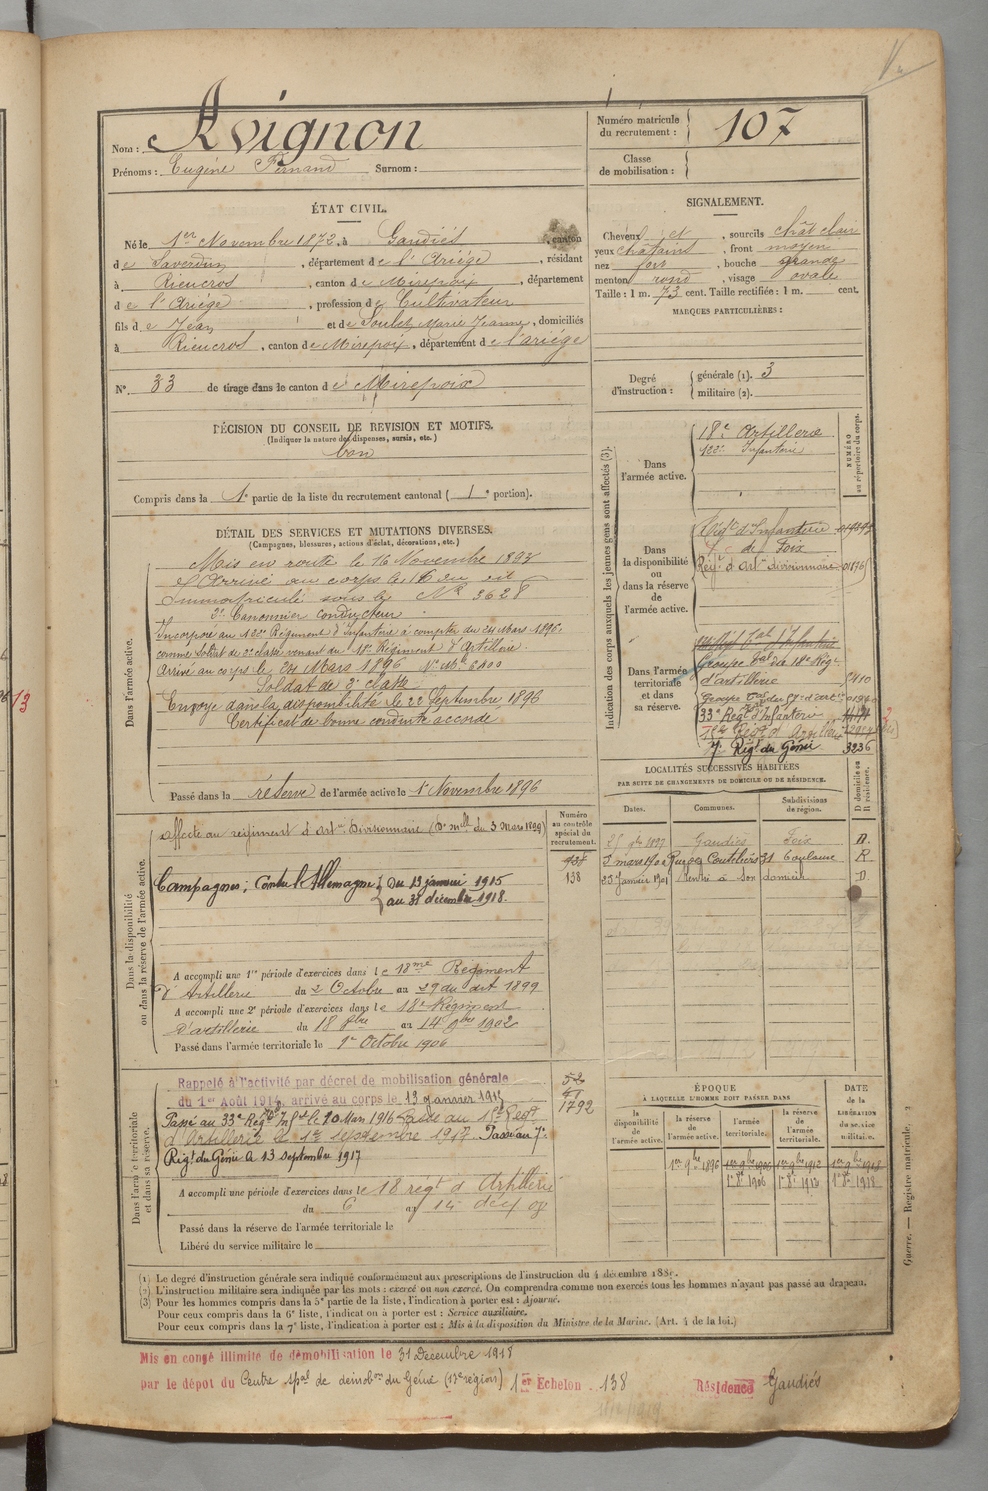 Nom : Avignon
Prénoms : Eugène Fernand Surnom :
Numéro matricule du recrutement : 107
Classe de mobilisation :
ÉTAT CIVIL.
Né le 1er Novembre 1872, à Gaudiés, canton
de Saverdun, département de l'Ariége, résidant
à Rieucros, canton de Mirepoix, département
de l'Ariége, profession de Cultivateur
fils de Jean et de Soulet Marie Jeanne, domiciliés
à Rieucros, canton de Mirepoix, département de l'ariége
N° 33 de tirage dans le canton de Mirepoix
SIGNALEMENT.
Cheveux et, sourcils chât clair
yeux châtains, front moyen
nez fort, bouche grande
menton rond, visage ovale
Taille : 1 m. 73 cent. Taille rectifiée : 1 m. cent.
MARQUES PARTICULIÈRES :
Degré d'instruction : générale (1). 3
militaire (2).
DÉCISION DU CONSEIL DE REVISION ET MOTIFS.
(Indiquer la nature des dispenses, sursis, etc.)
bon
Compris dans la 1e partie de la liste du recrutement cantonal (1e portion).
DÉTAIL DES SERVICES ET MUTATIONS DIVERSES.
(Campagnes, blessures, actions d'éclat, décorations, etc.)
Dans l'armée active.
Mis en route le 16 Novembre 1893
Arrivé au corps le 16 du dit
Immatriculé sous le N° 3628
2e Canonnier conducteur
Incorporé au 122e Régiment d'Infanterie à compter du 24 Mars 1896
comme soldat de 2e classe venant du 18e Régiment d'Artillerie.
Arrivé au corps le 24 Mars 1896 N° Mle 6400
Soldat de 2e classe
Envoyé dans la disponibilité le 22 Septembre 1896
Certificat de bonne conduite accordé
Passé dans la réserve de l'armée active le 1er Novembre 1896
Indication des corps auxquels les jeunes gens sont affectés (3).
NUMÉRO au répertoire du corps.
Dans l'armée active.
18e Artillerie
122e Infanterie
Dans la disponibilité ou dans la réserve de l'armée active.
Régt d'Infanterie
de Foix
Régt d'Artie divisionnaire
Dans l'armée territoriale et dans sa réserve.
Groupe tal du 18e Régt
d'artillerie
33e Régt d'Infanterie
7e Régt du Génie 3236
LOCALITÉS SUCCESSIVES HABITÉES
PAR SUITE DE CHANGEMENTS DE DOMICILE OU DE RÉSIDENCE.
Dates. Communes. Subdivisions de région. D domicile ou R résidence.
25 9bre 1897 Gaudiés Foix D.
5 mars 1900 Rue des Couteliers 31 Toulouse R
23 Janvier 1901 Rentré à son domicile D
Dans la disponibilité ou dans la réserve de l'armée active.
Numéro au contrôle spécial du recrutement.
138
Affecté au régiment d'artie Divisionnaire (Don mlle du 3 Mars 1899)
Campagnes : Contre l'Allemagne Du 13 janvier 1915
au 31 décembre 1918.
A accompli une 1re période d'exercices dans le 18me Régiment
d'Artillerie du 2 Octobre au 29 du dit 1899
A accompli une 2e période d'exercices dans le 18e Régiment
d'artillerie du 18 8bre au 14 9bre 1902
Passé dans l'armée territoriale le 1er Octobre 1906
Dans l'armée territoriale et dans sa réserve.
52
1792
Rappelé à l'activité par décret de mobilisation générale
du 1er Août 1914, arrivé au corps le 13 janvier 1915
Passé au 33e Régt Inft le 10 Mars 1916 Passé au
d'Artillerie le 1er septembre 1917 Passé au 7e
Régt du Génie le 13 septembre 1917
A accompli une période d'exercices dans le 18 régt d'Artillerie
du 6 au 14
Passé dans la réserve de l'armée territoriale le
Libéré du service militaire le
ÉPOQUE
A LAQUELLE L'HOMME DOIT PASSER DANS
DATE de la LIBÉRATION du service militaire.
la disponibilité de l'armée active. la réserve de l'armée active. l'armée territoriale. la réserve de l'armée territoriale.
1er 9bre 1896 1er 9bre 1906 1er 9bre 1912 1er 9bre 1918
1er 8e 1906 1er 8e 1912 1er 8e 1918
Guerre. — Registre matricule.
(1) Le degré d'instruction générale sera indiqué conformément aux prescriptions de l'instruction du 4 décembre 1889.
(2) L'instruction militaire sera indiquée par les mots : exercé ou non exercé. On comprendra comme non exercés tous les hommes n'ayant pas passé au drapeau.
(3) Pour les hommes compris dans la 5e partie de la liste, l'indication à porter est : Ajourné.
Pour ceux compris dans la 6e liste, l'indication à porter est : Service auxiliaire.
Pour ceux compris dans la 7e liste, l'indication à porter est : Mis à la disposition du Ministre de la Marine. (Art. 4 de la loi.)
Mis en congé illimité de démobilisation le 31 Décembre 1918
par le dépôt du Centre spal de demobon du Génie (17e région) 1er Echelon 138 Résidence Gaudiés